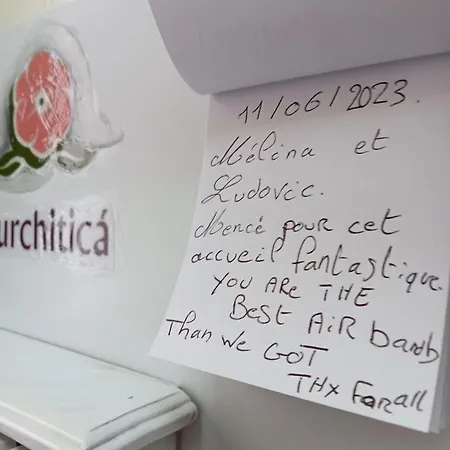 urchiticá
11/06/2023.
Mélina et
Ludovic.
Mencé pour cet
accueil fantastique.
YOU ARE THE
BEST AIR banb
Than We GOT
THX For all